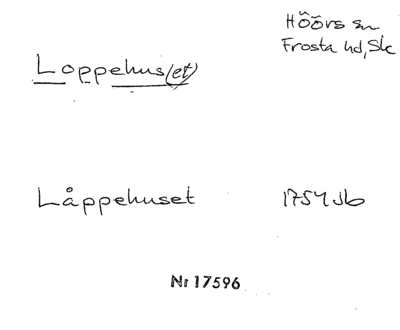 Höörs sn
Frosta hd, Sk
Loppehus(et)
Låppehuset 1754 Jb
Nr 17596